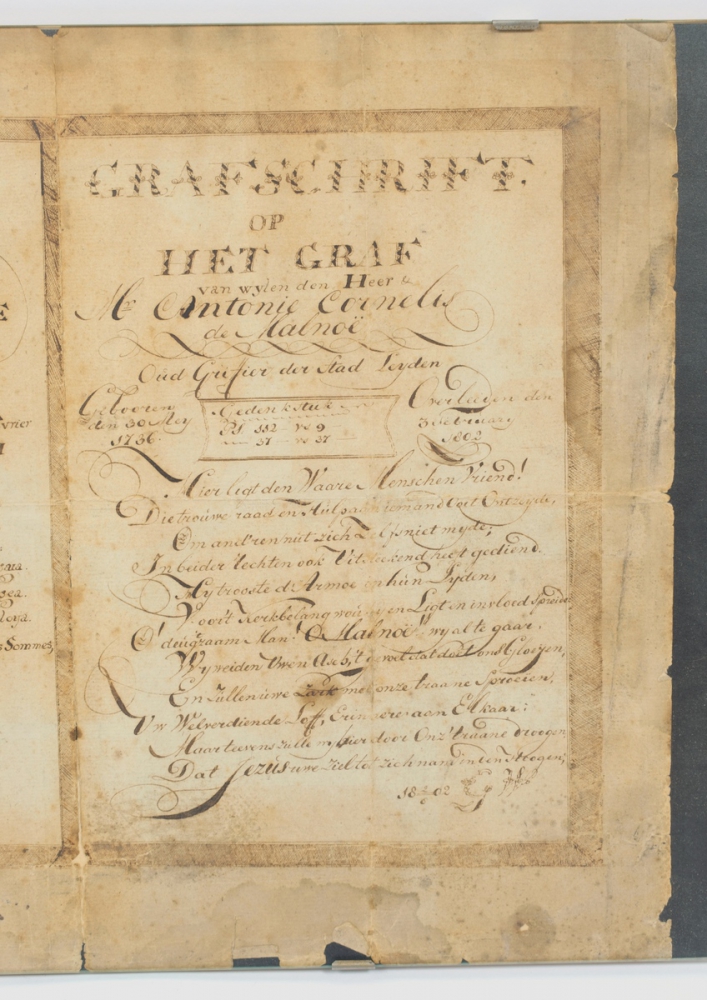 GRAFSCHRIFT.
OP
HET GRAF
van wylen den Heer
Mr Antonie Cornelis
de Malnoë
Oud Griffier der Stad Leyden
Gebooren
den 30 Mey
1736.
Gedenkstuk
Ps 112 vs 9
37 vs 37
Overleeden den
3 February
1802
Hier ligt den Waare Menschen Vriend!
Die trouwe raad en Hulp aan iemand Ooit Ontzeyde,
Om and'ren nut zich zelfs niet mydde;
In beider Rechten ook Uitsteekend heeft gediend.
Hy troostte d'Armoe in hun Lyden,
Voor't Kerkbelang en Ligt en invloed Spreide
O! deugzaam Man! O Malnoë! wy al te gaar.
Wy weiden Uwen Asch, 't doet ons Gloeijen,
En zullen uwe Zark met onze traane Sproeien,
Uw Welverdiende Loff, Erinneren aan Elkaar:
Maar teevens zulle wy hier door Onz' traane droogen
Dat Jezus uwe ziel tot zich nam in den Hoogen;
1802
E
vrier
aara.
sea.
Sommes,